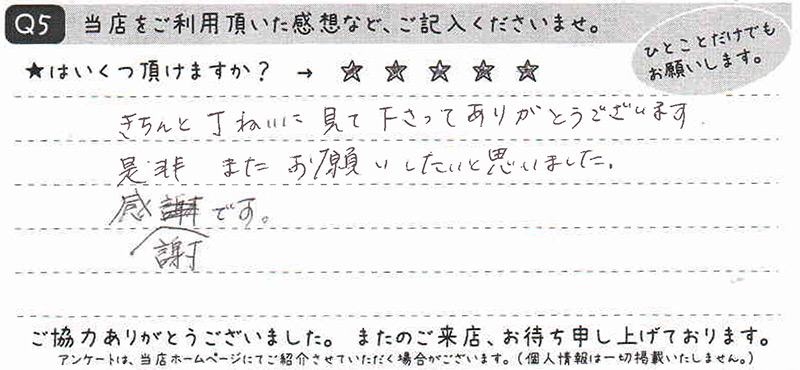 Q5 当店をご利用頂いた感想など、ご記入くださいませ。
ひとことだけでも
お願いします。
★はいくつ頂けますか？ → ☆ ☆ ☆ ☆ ☆
きちんと丁ねいに見て下さってありがとうございます.
是非 また お願いしたいと思いました.
感謝です。
謝
ご協力ありがとうございました。 またのご来店、お待ち申し上げております。
アンケートは、当店ホームページにてご紹介させていただく場合がございます。（個人情報は一切掲載いたしません。）